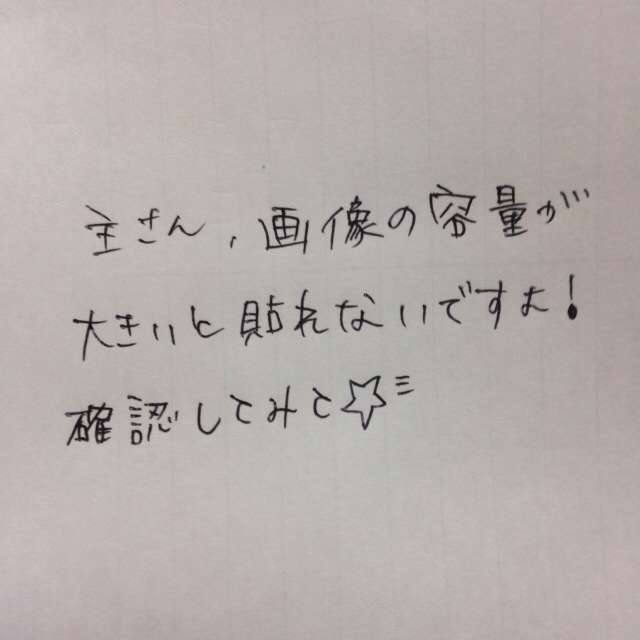 主さん，画像の容量が
大きいと貼れないですよ！
確認してみて☆